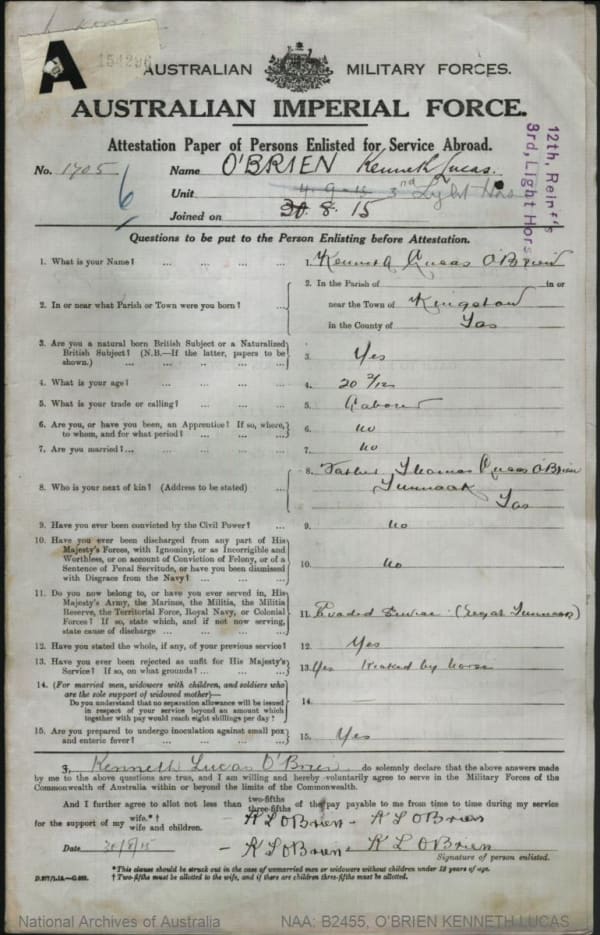 A 154296
AUSTRALIAN MILITARY FORCES.
AUSTRALIAN IMPERIAL FORCE.
Attestation Paper of Persons Enlisted for Service Abroad.
12th, Reinf's
3rd, Light Hors
No. 1705 Name O'BRIEN Kenneth Lucas.
6
Unit 4.9.15 3rd Light Hors
Joined on 30. 8. 15
Questions to be put to the Person Enlisting before Attestation.
1. What is your Name? ... ... ... 1. Kenneth Lucas O'Brien
2. In or near what Parish or Town were you born? ... 2. In the Parish of in or
near the Town of Kingston
in the County of Tas
3. Are you a natural born British Subject or a Naturalized
British Subject? (N.B.—If the latter, papers to be
shown.) ... ... ... ... 3. Yes
4. What is your age? ... ... ... 4. 20 2/12
5. What is your trade or calling? ... ... ... 5. Labourer
6. Are you, or have you been, an Apprentice? If so, where,
to whom, and for what period? ... ... ... 6. no
7. Are you married?... ... ... ... 7. no
8. Who is your next of kin? (Address to be stated) ... 8. Father Thomas Lucas O'Brien
Tunnack
Tas
9. Have you ever been convicted by the Civil Power? ... 9. no
10. Have you ever been discharged from any part of His
Majesty's Forces, with Ignominy, or as Incorrigible and
Worthless, or on account of Conviction of Felony, or of a
Sentence of Penal Servitude, or have you been dismissed
with Disgrace from the Navy? ... ... ... 10. no
11. Do you now belong to, or have you ever served in, His
Majesty's Army, the Marines, the Militia, the Militia
Reserve, the Territorial Force, Royal Navy, or Colonial
Forces? If so, state which, and if not now serving,
state cause of discharge ... ... ... 11. Evaded Service (Legal Tunnack)
12. Have you stated the whole, if any, of your previous service? 12. Yes
13. Have you ever been rejected as unfit for His Majesty's
Service? If so, on what grounds? ... ... 13. Yes kicked by horse
14. (For married men, widowers with children, and soldiers who
are the sole support of widowed mother)—
Do you understand that no separation allowance will be issued
in respect of your service beyond an amount which
together with pay would reach eight shillings per day? 14.
15. Are you prepared to undergo inoculation against small pox
and enteric fever? ... ... ... ... 15. Yes
I, Kenneth Lucas O'Brien do solemnly declare that the above answers made
by me to the above questions are true, and I am willing and hereby voluntarily agree to serve in the Military Forces of the
Commonwealth of Australia within or beyond the limits of the Commonwealth.
And I further agree to allot not less than two-fifths three-fifths of the pay payable to me from time to time during my service
for the support of my wife.*† wife and children. - K L O'Brien - K L O'Brien
Date 30/8/15 - K L O'Brien - K L O'Brien
Signature of person enlisted.
*This clause should be struck out in the case of unmarried men or widowers without children under 18 years of age.
† Two-fifths must be allotted to the wife, and if there are children three-fifths must be allotted.
National Archives of Australia NAA: B2455, O'BRIEN KENNETH LUCAS